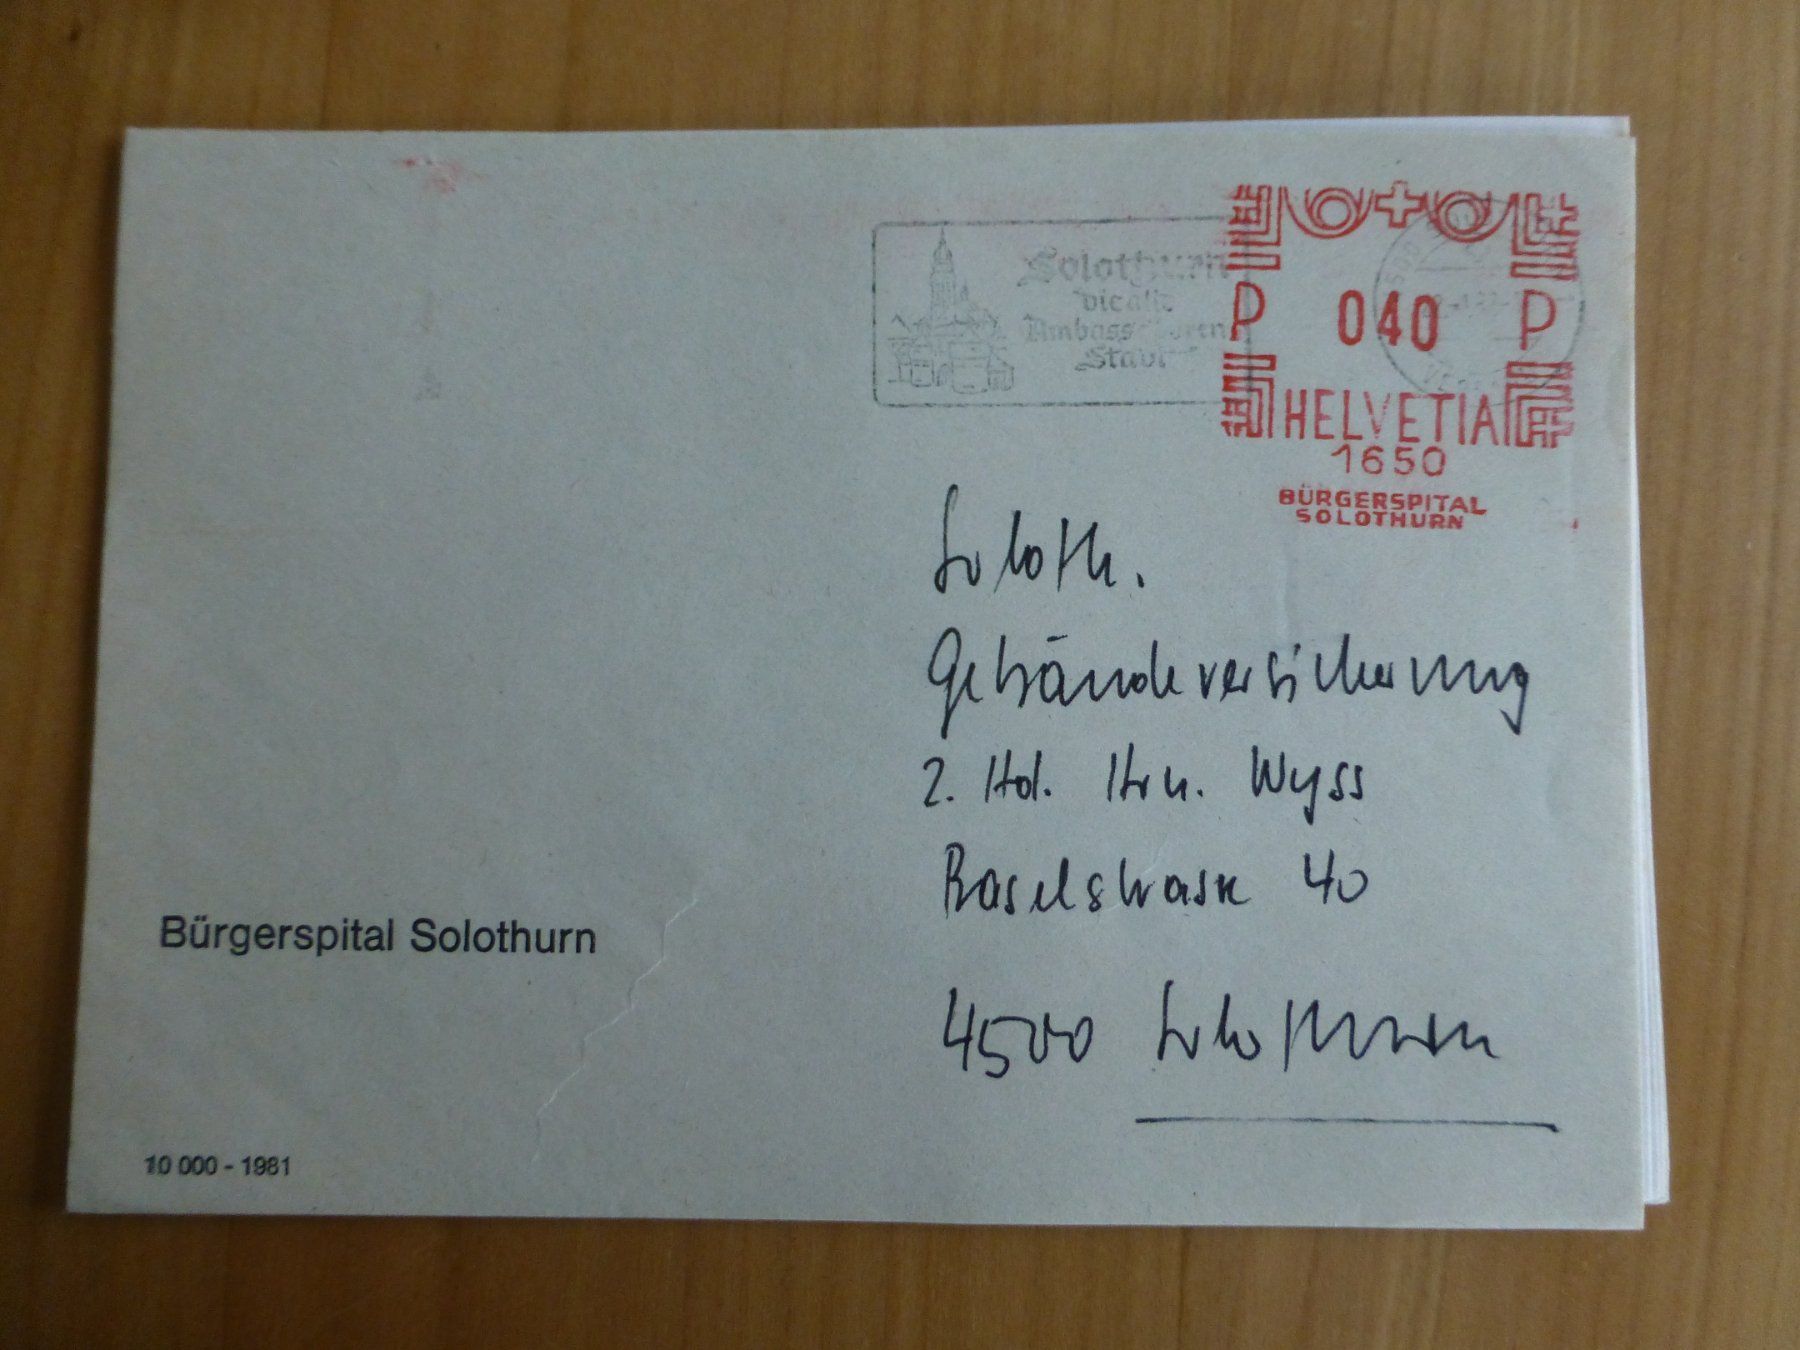 Solothurn
die alte
Ambassadoren
Stadt
P 040 P
HELVETIA
1650
BÜRGERSPITAL
SOLOTHURN
Soloth.
Gebäudeversicherung
z. Hd. Hrn. Wyss
Baselstrasse 40
4500 Solothurn
Bürgerspital Solothurn
10 000 - 1981